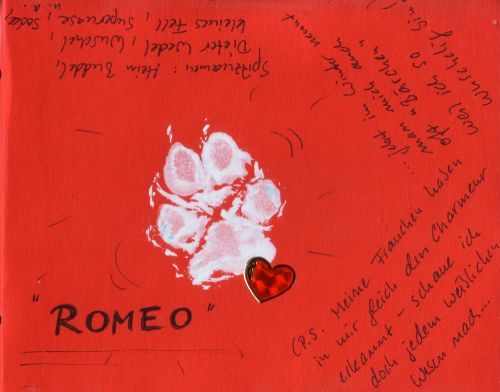 Spitznamen: Hein Buddel,
Dieter Wedel, Wuschel,
kleines Fell, Supernase, Socke,
u. a.
... jetzt im Winter nennt
man mich auch
oft "Bärchen"
weil ich so
wuschelig bin!
"ROMEO"
(P.S. Meine Frauchen haben
in mir gleich den Charmeur
erkannt - schaue ich
doch jedem weiblichen
Wesen nach...